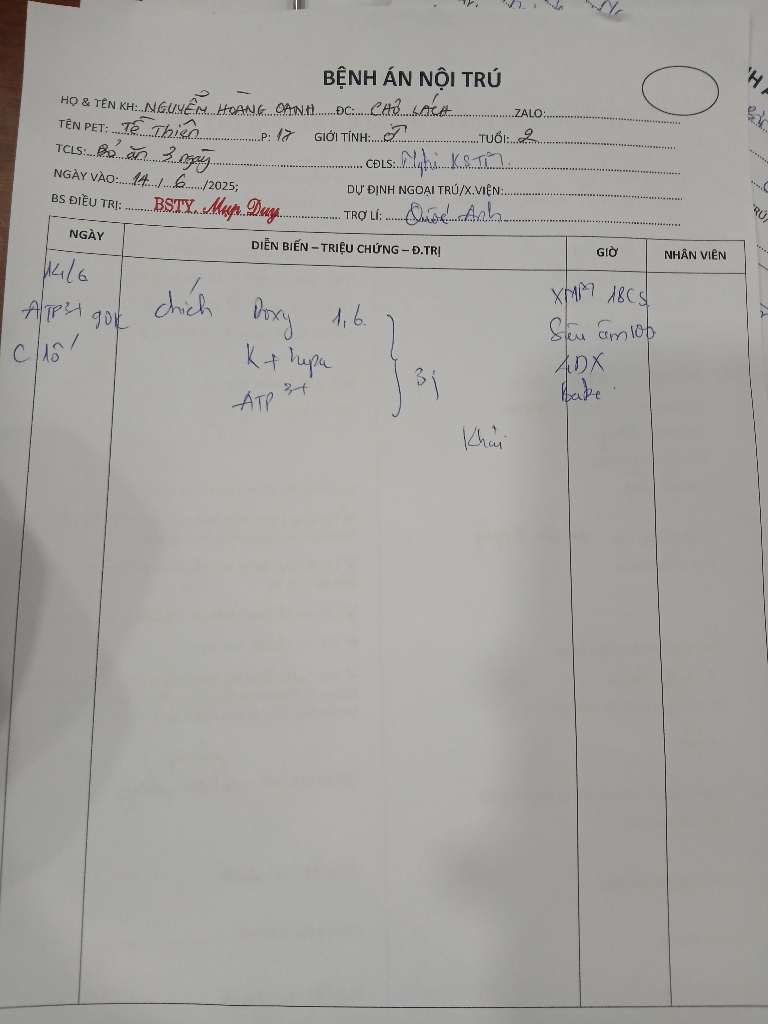 BỆNH ÁN NỘI TRÚ
HỌ & TÊN KH: NGUYỄN HOÀNG OANH ĐC: CHỢ LÁCH ZALO:
TÊN PET: Tề Thiên P: 17 GIỚI TÍNH: ♂ TUỔI: 2
TCLS: Bỏ ăn 3 ngày CĐLS: Nghi KSTM
NGÀY VÀO: 14 / 6 /2025; DỰ ĐỊNH NGOẠI TRÚ/X.VIỆN:
BS ĐIỀU TRỊ: BSTY. Mup Duy TRỢ LÍ: Quốc Anh
NGÀY DIỄN BIẾN – TRIỆU CHỨNG – Đ.TRỊ GIỜ NHÂN VIÊN
14/6 XMP7 18CS
ATP3+ 90K chích Doxy 1,6 Siêu âm 100
C 10 K + hepa 3j 4DX
ATP 3+
Khải